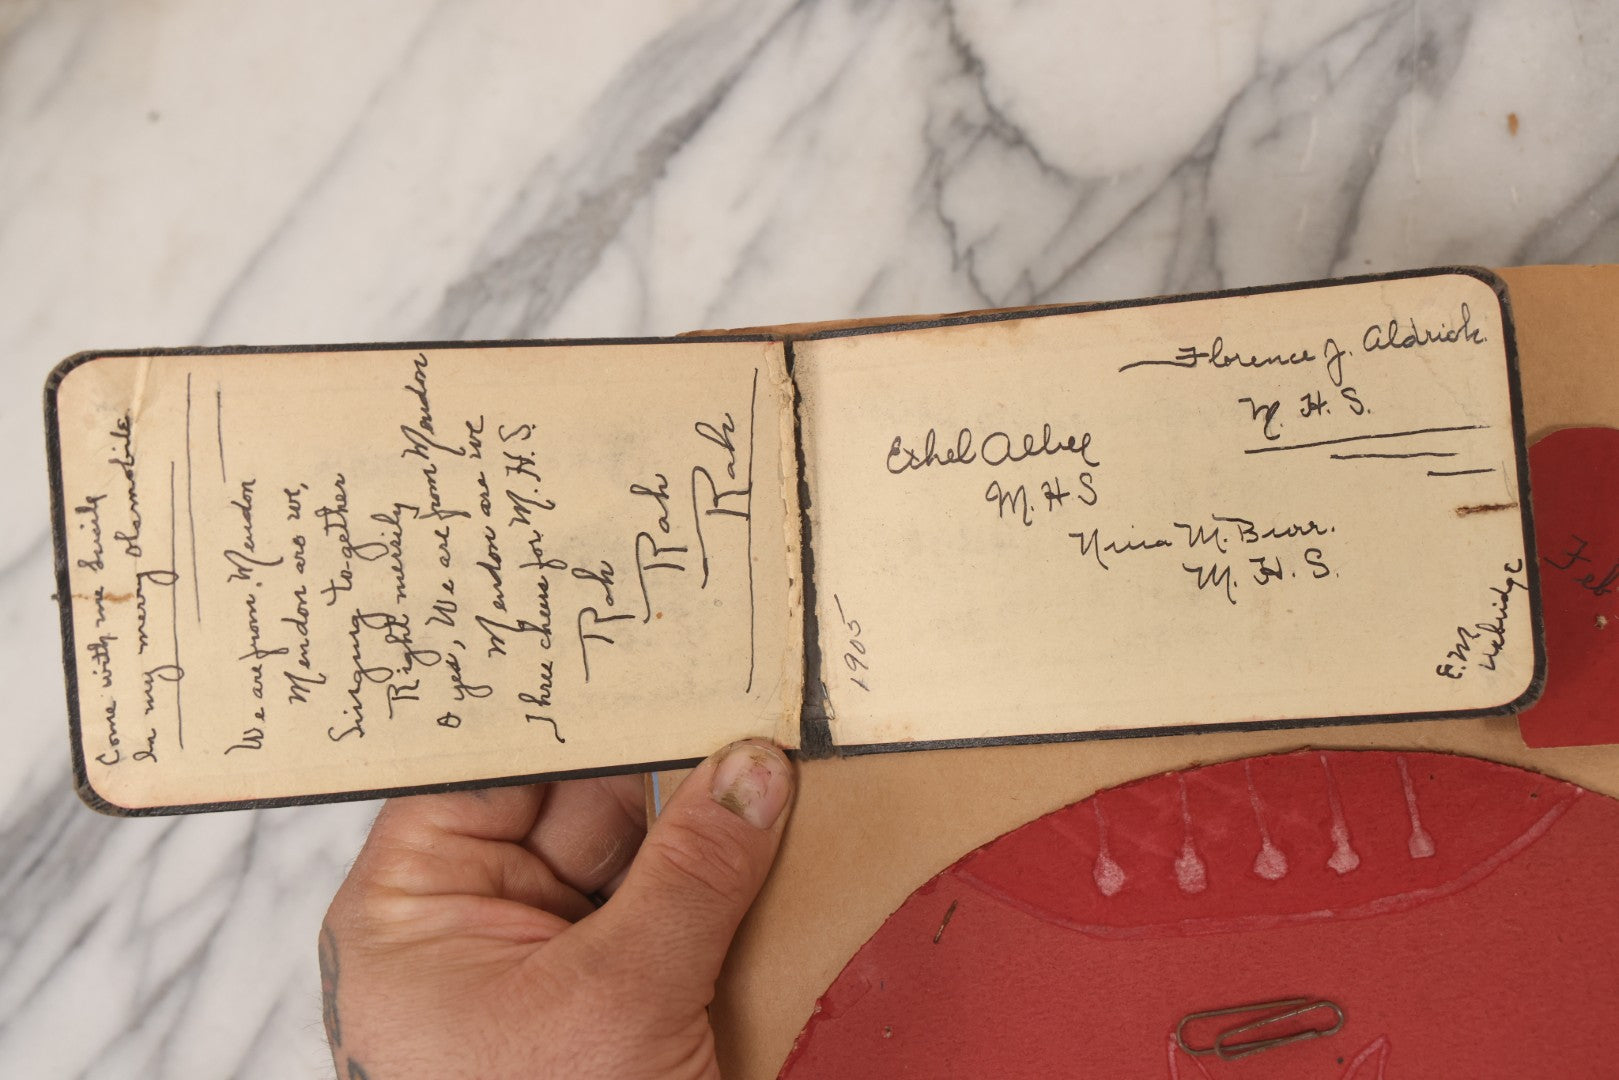 Come with me Lucile
In my merry Olsmobile
We are from Mendon
Mendon are we,
Singing together
Right merrily
O yes, We are from Mendon
Mendon are we
Three cheers for M. H. S.
Rah
Rah
Rah
1905
Florence J. Aldrich.
M. H. S.
Ethel Albee
M. H S
Nina M. Burr.
M. H. S.
E. M.
Uxbridge
Feb